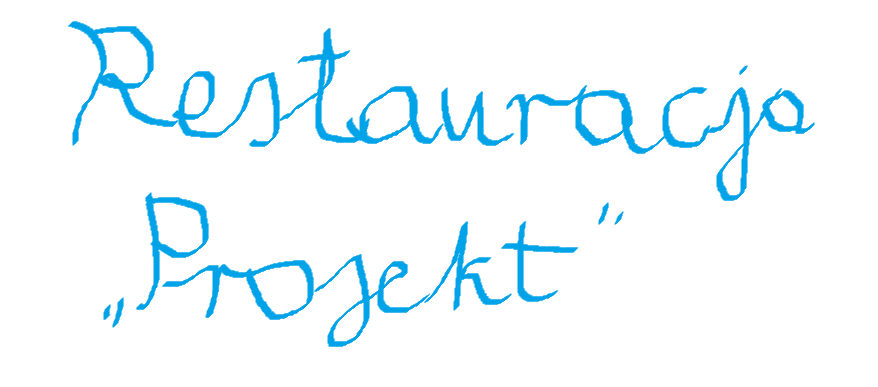 Restauracja
„Projekt”